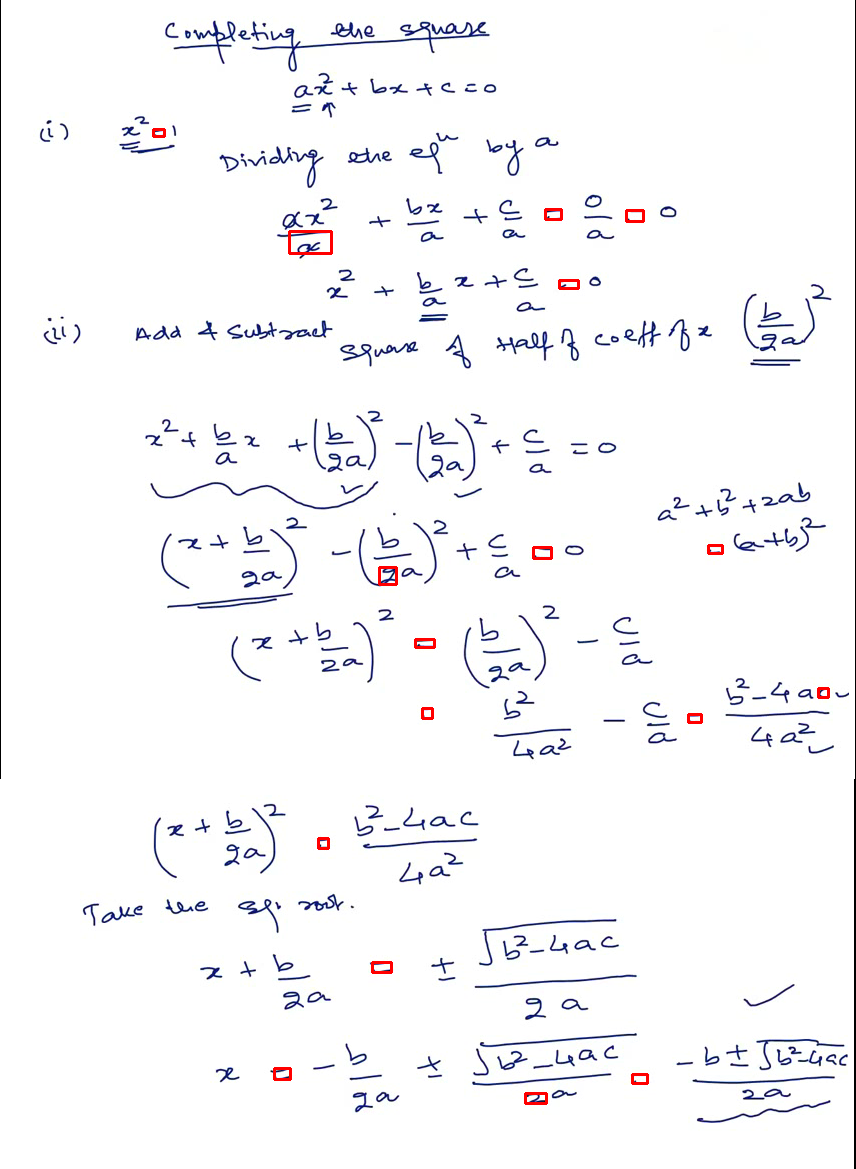 Completing the square
ax² + bx + c = 0
(i) x² = 1
Dividing the eqⁿ by a
ax²/a + bx/a + c/a = 0/a = 0
x² + b/a x + c/a = 0
(ii) Add & Subtract square of Half of coeff of x (b/2a)²
x² + b/a x + (b/2a)² - (b/2a)² + c/a = 0
a² + b² + 2ab
(x + b/2a)² - (b/2a)² + c/a = 0
= (a+b)²
(x + b/2a)² = (b/2a)² - c/a
= b²/4a² - c/a = b² - 4a /4a²
(x + b/2a)² = b² - 4ac/4a²
Take the sq. root.
x + b/2a = ± √(b² - 4ac)/2a
x = - b/2a ± √(b² - 4ac)/2a = -b ± √(b² - 4ac)/2a